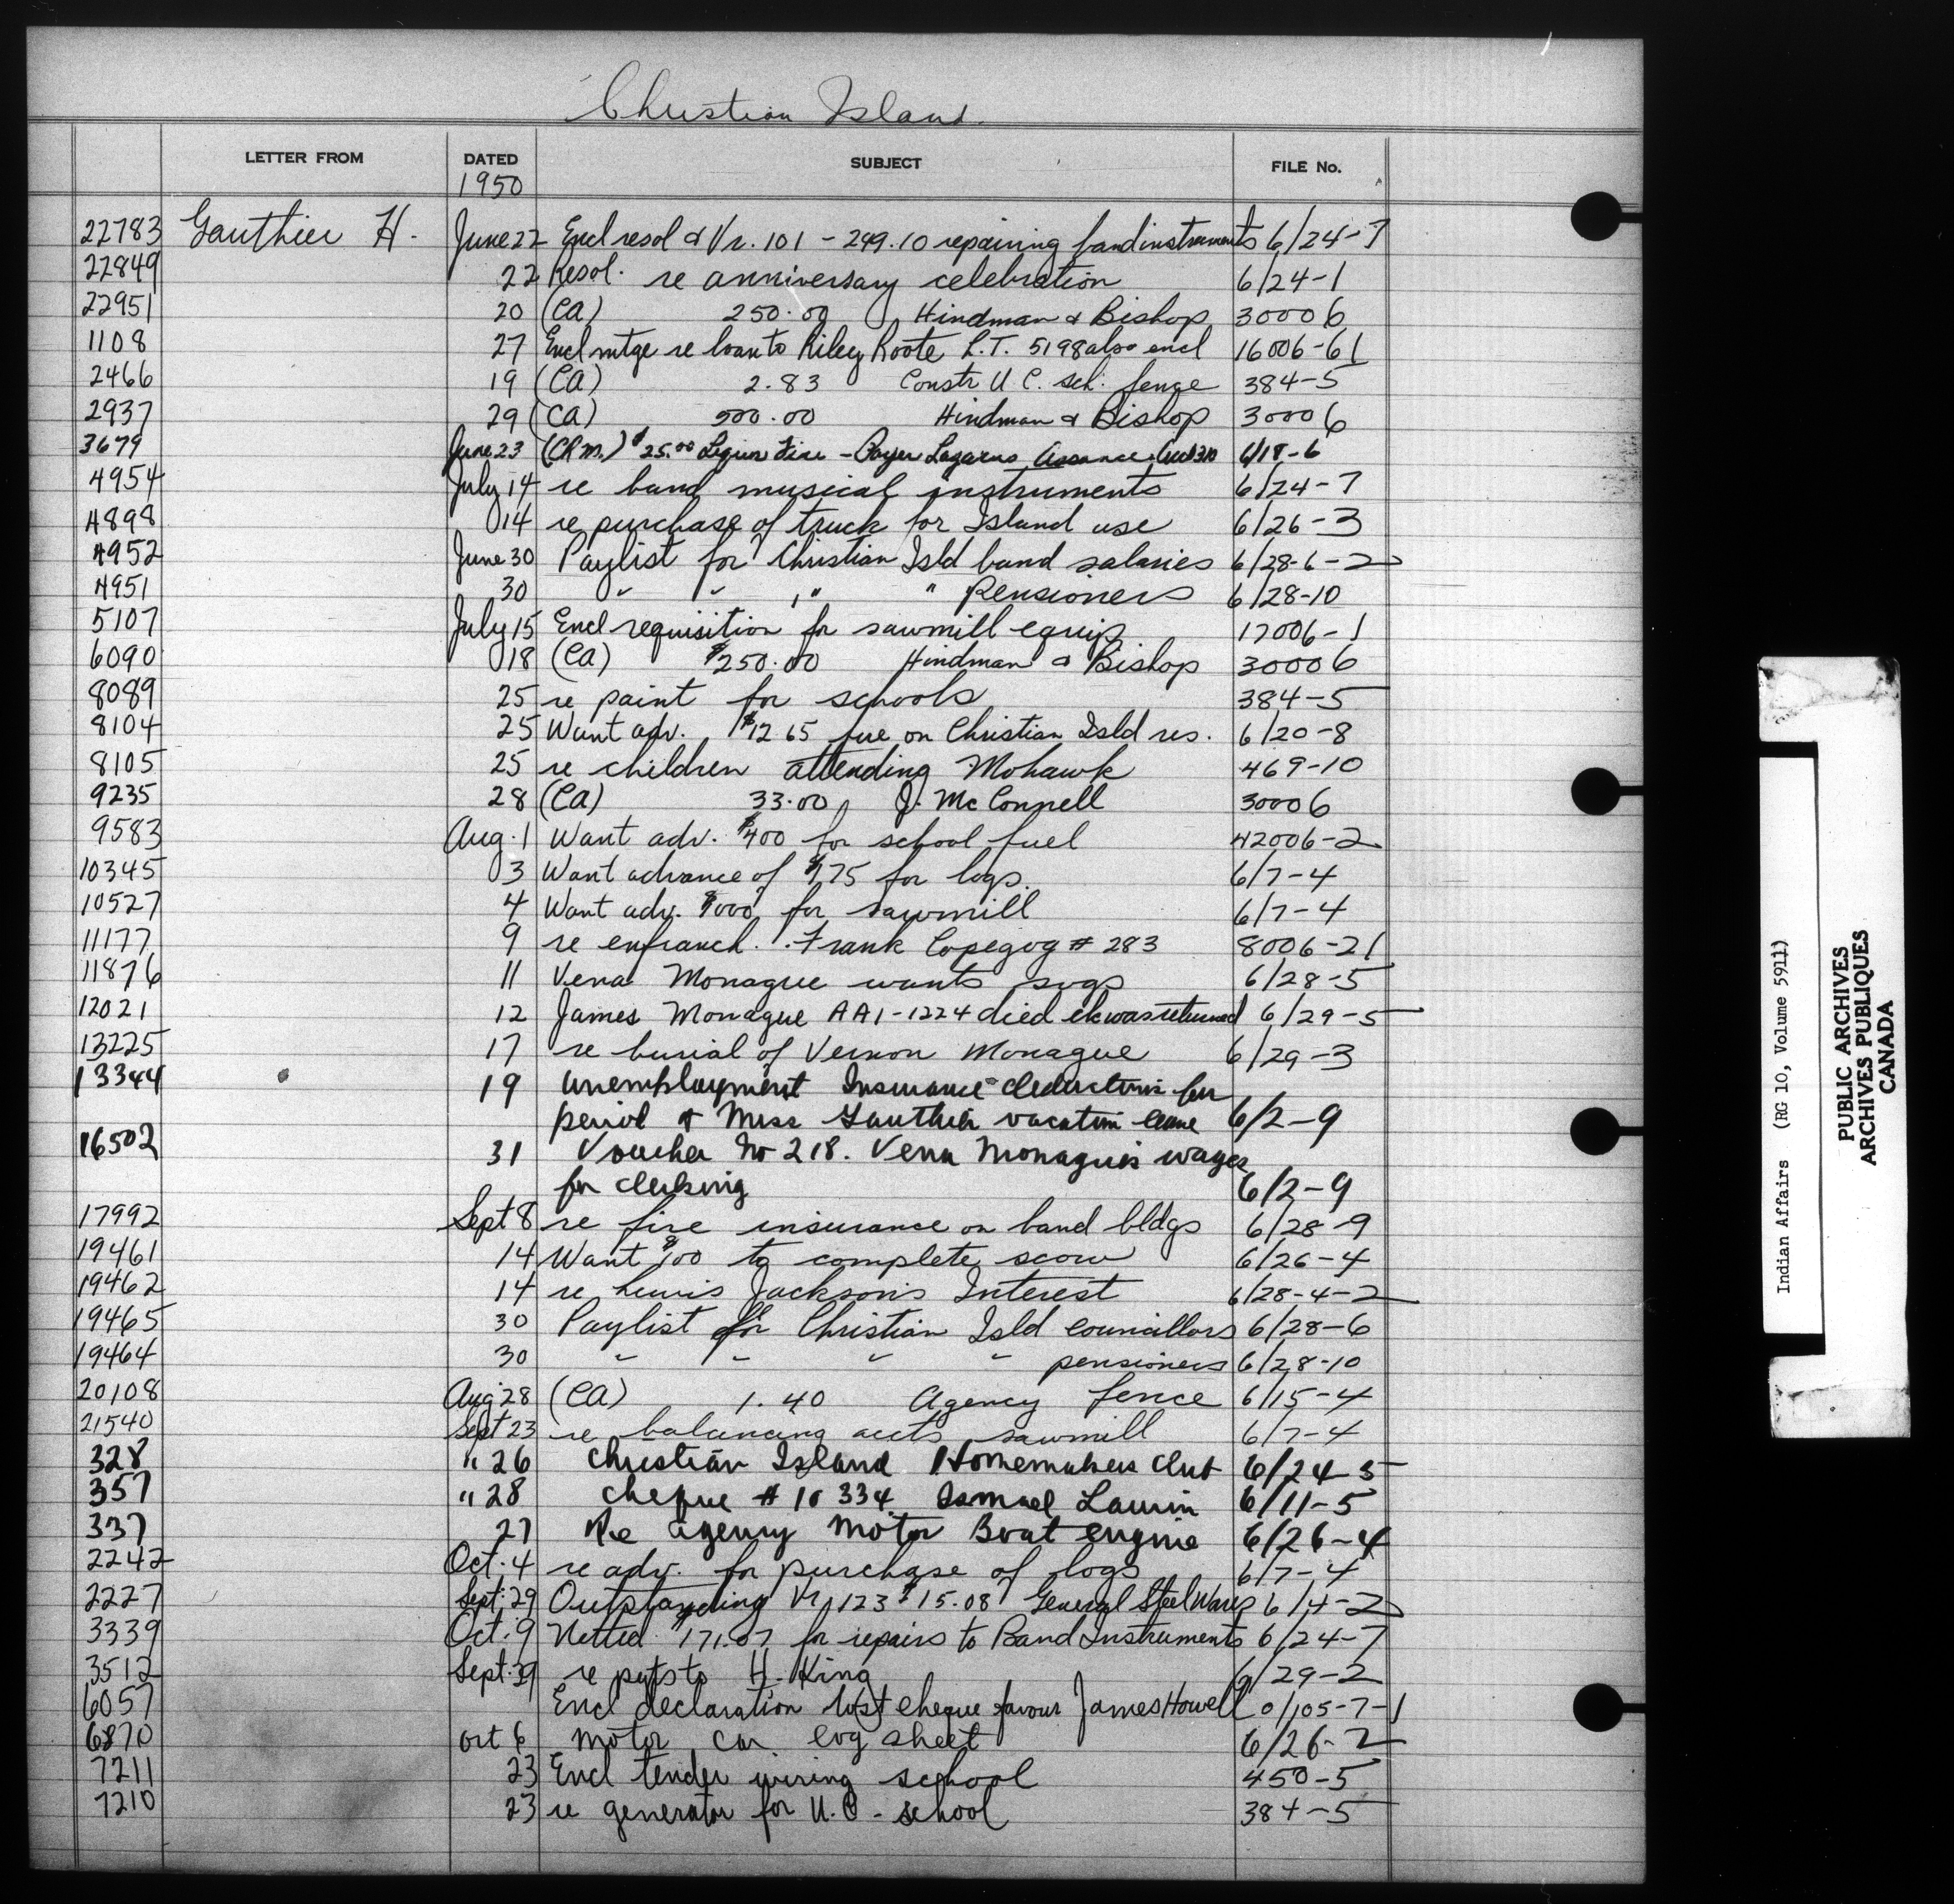 Christian Island
LETTER FROM DATED SUBJECT FILE No.
1950
22783 Gauthier H. June 22 Encl resol & Vr. 101 - 249.10 repairing band instruments 6/24-7
22849 22 Resol. re anniversary celebration 6/24-1
22951 20 (CA) 250.00 Hindman & Bishop 30006
1108 27 Encl mtge re loan to Riley Roote L.T. 5198 also encl 16006-61
2466 19 (CA) 2.83 Constr U.C. sch. fence 384-5
2937 29 (CA) 500.00 Hindman & Bishop 30006
3679 June 23 $25.00 Fire - Lazarus 6/18-6
4954 July 14 re band musical instruments 6/24-7
4898 14 re purchase of truck for Island use 6/26-3
4952 June 30 Paylist for Christian Isld band salaries 6/28-6-2
4951 30 " " " " Pensioners 6/28-10
5107 July 15 Encl requisition for sawmill equip 17006-1
6090 18 (CA) $250.00 Hindman & Bishop 30006
8089 25 re paint for schools 384-5
8104 25 Want adv. $12 65 fire on Christian Isld res. 6/20-8
8105 25 re children attending Mohawk 469-10
9235 28 (CA) 33.00 J. McConnell 30006
9583 Aug. 1 Want adv. $400 for school fuel 42006-2
10345 3 Want advance of $175 for logs 6/7-4
10527 4 Want adv. for sawmill 6/7-4
11177 9 re enfranch. Frank Copegog # 283 8006-21
11876 11 Vena Monague wants 6/28-5
12021 12 James Monague AA1-1224 died ck was returned 6/29-5
13225 17 re burial of Vernon Monague 6/29-3
13344 19 Unemployment Insurance deductions for
period of Miss Gauthier vacation leave 6/2-9
16502 31 Voucher No 218. Vena Monague's wages
for clerking 6/2-9
17992 Sept 8 re fire insurance on band bldgs 6/28-9
19461 14 Want $100 to complete scow 6/26-4
19462 14 re Lewis Jackson's Interest 6/28-4-2
19465 30 Paylist for Christian Isld councillors 6/28-6
19464 30 " " " " pensioners 6/28-10
20108 Aug 28 (CA) 1.40 Agency fence 6/15-4
21540 Sept 23 re balancing accts sawmill 6/7-4
328 " 26 Christian Island Homemakers Club 6/24-5
357 " 28 Cheque # 10334 Samuel Laurin 6/11-5
337 27 Re Agency Motor Boat engine 6/26-4
2242 Oct. 4 re adv. for purchase of logs 6/7-4
2227 Sept. 29 Outstanding Vr 123 $15.08 General Steel Wares 6/4-2
3339 Oct. 9 $171.07 for repairs to Band Instruments 6/24-7
3512 Sept. 29 re pyts to H. King 6/29-2
6057 Encl declaration lost cheque favour James Howell 0/105-7-1
6870 Oct 6 Motor Car log sheet 6/26-2
7211 23 Encl tender wiring school 450-5
7210 23 re generator for U.C. school 384-5
Indian Affairs (RG 10, Volume 5911)
PUBLIC ARCHIVES
ARCHIVES PUBLIQUES
CANADA